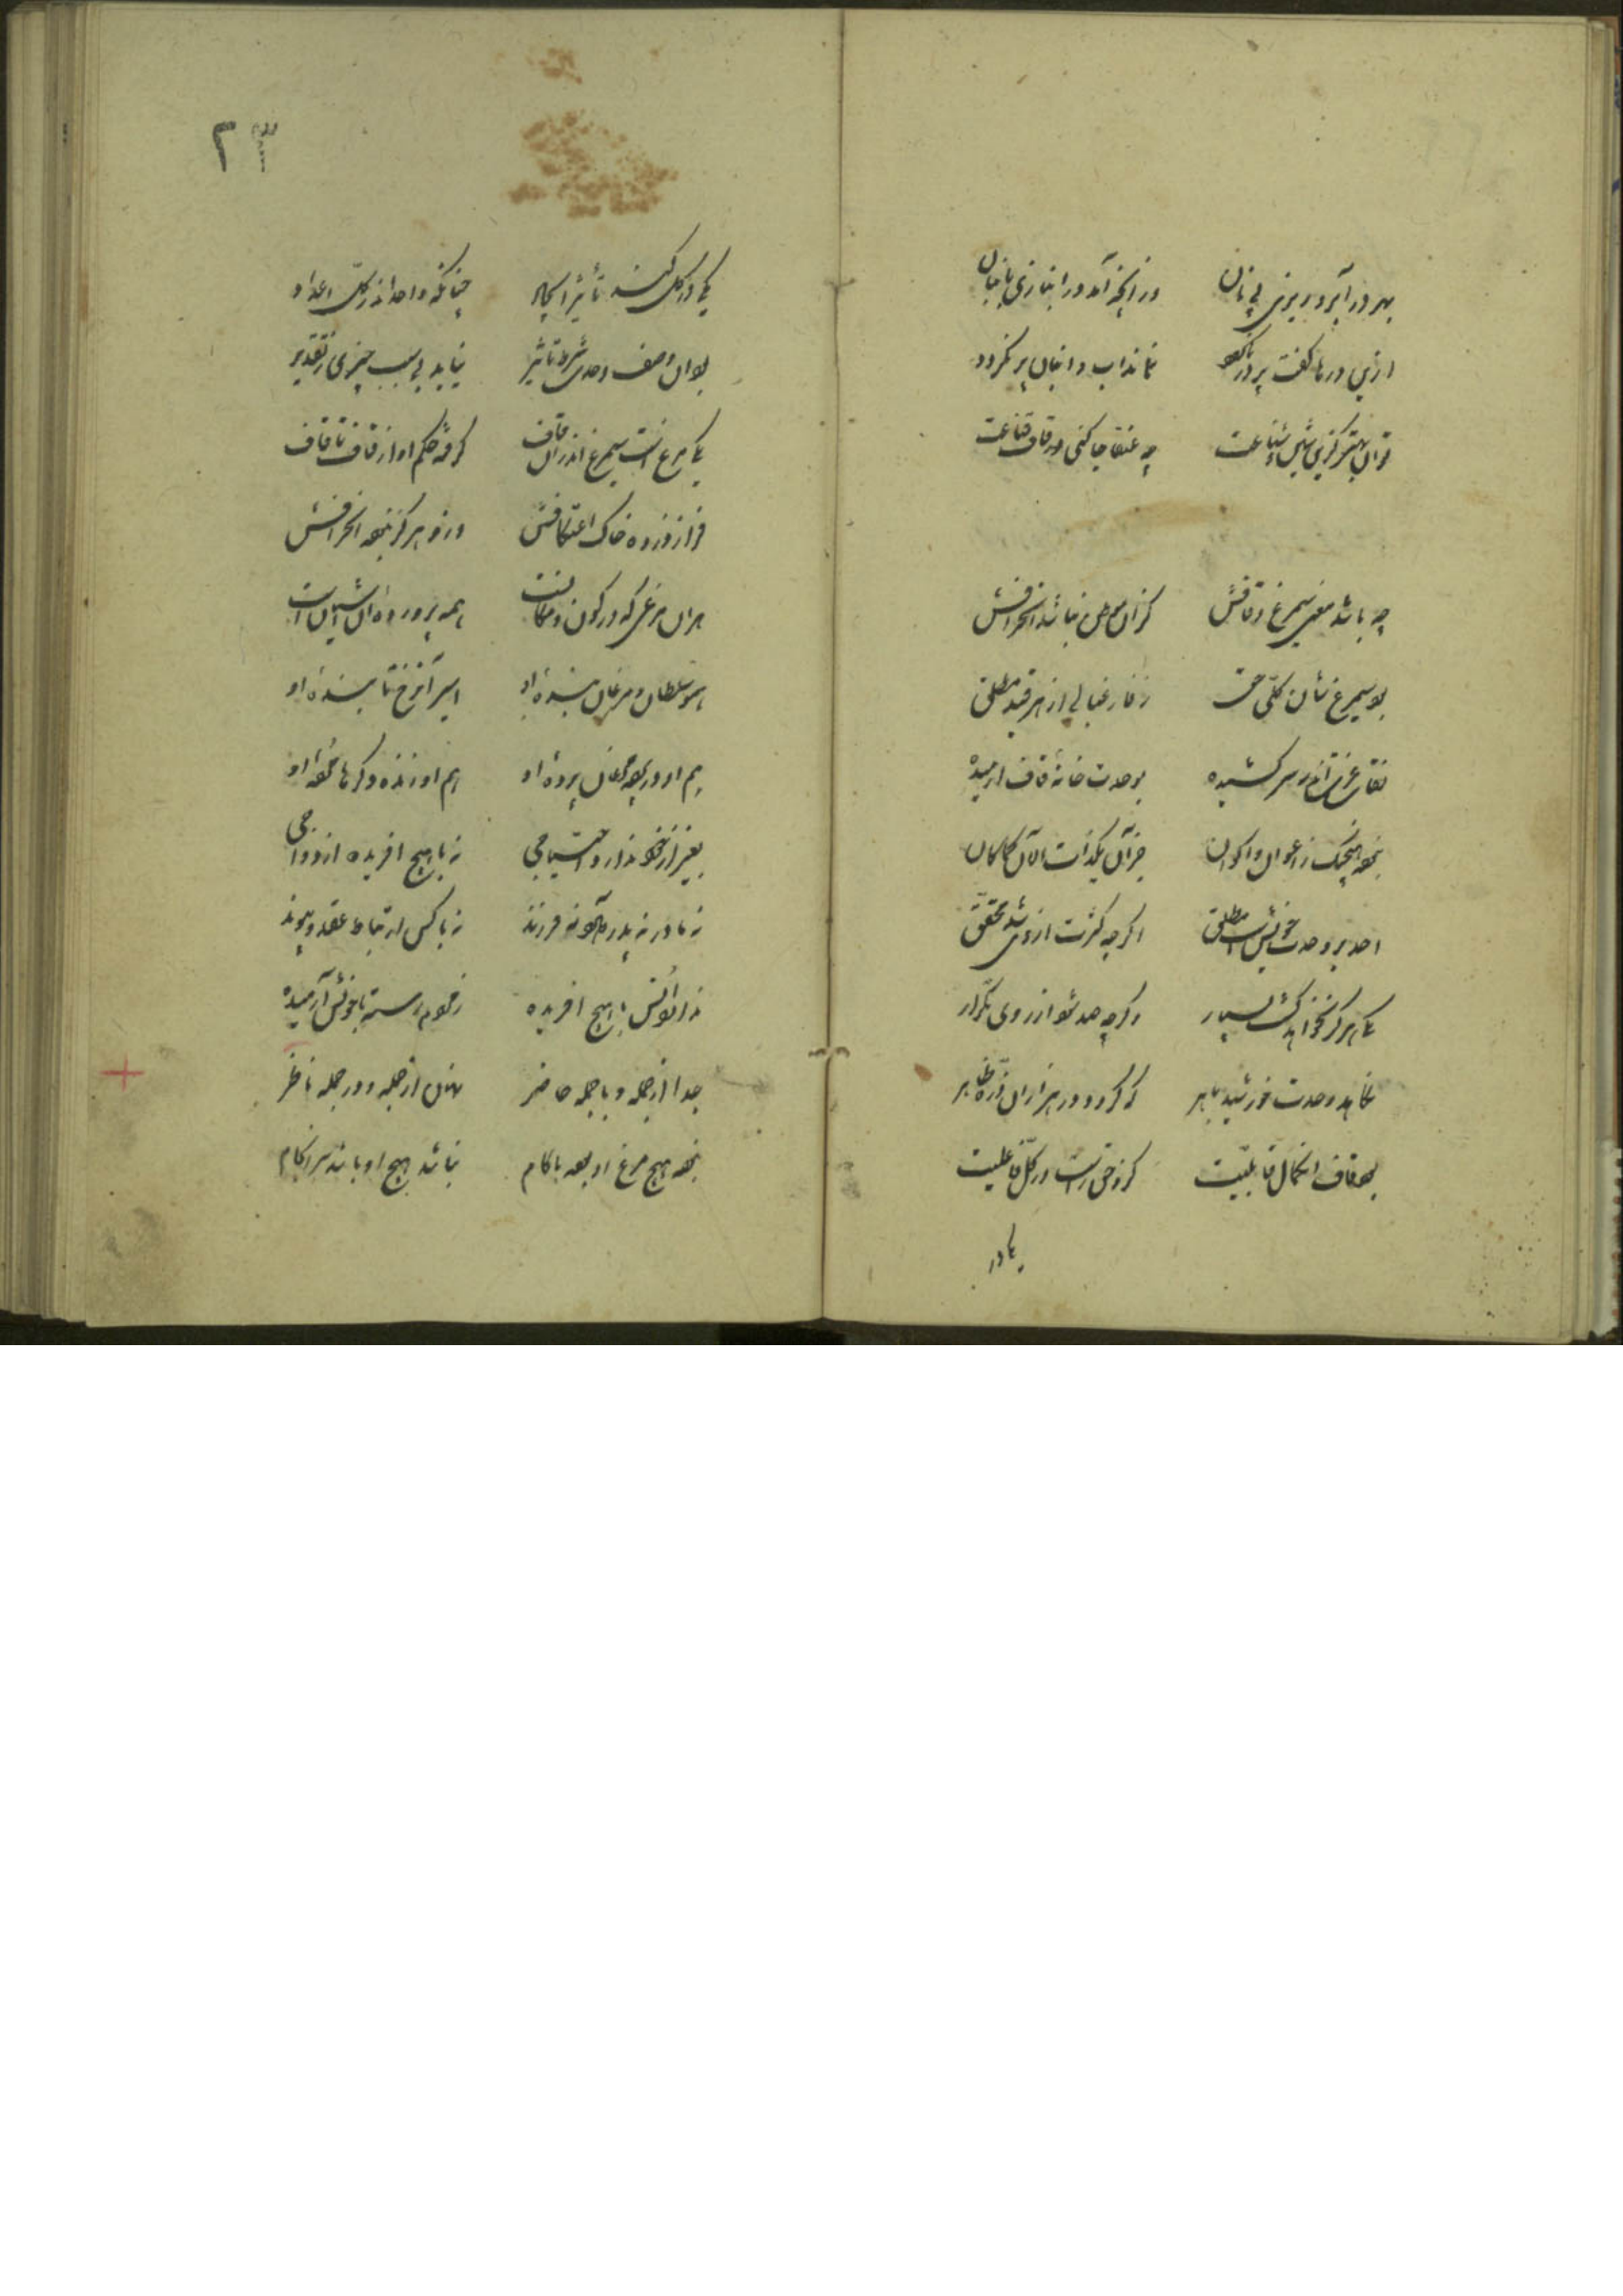 بهر در آبرو ریزی پی نان در انجه آمد در انبازی با جان
ازین درها کفت پر در نماند آب و انبان پر نکردد
توان بهتر کزین چه عنقا جا کنی در قاف قناعت
چه باشد معنی سیمرغ و قافش کزان موطن نباشد انحرافش
بود سیمرغ شان کلّی حق ز فارغبالی از هر قید مطلق
نقاب عزت اندر سر کشیده بوحدت خانهٔ قاف آرمیده
نبود هیچیک ز اعوان و اکوان جز آن یکذات الآن کماکان
احد بر وحدت خویش است مطلق اگرچه کثرت از وی شد محقق
یکی هرکز نخواهد کشت بسیار وکرچه صد شود از روی تکرار
نکاهد وحدت خورشید باهر که کردد در هزاران ذرّه ظاهر
بود قاف آن کمال قابلیّت کزو حق راست در کل فاعلیت
یکی در
یکی در کل کند تأثیر ایجاد چنانکه واحد اندر کلّ اعداد
بود آن وصف واحد شرط تاثیر نیاید بی سبب چیزی ز تقدیر
یکی مرغ است سیمرغ اندران قاف گرفته حکم او از قاف تا قاف
فراز ذروه خاک اعتکافش وزو هرکز نبود انحرافش
هران مرغی که در کون و مکانست همه پرورده آن آشیانست
همو سلطان و مرغان بندهٔ او اسیر آن رخ تابندهٔ او
هم او در جمله مرغان پردهٔ او هم او زنده دکرها مردهٔ او
بغیر از خود ندارد احتیاجی نه با هیچ آفریده ازدواجی
نه مادر نه پدر او را نه فرزند نه با کس ارتباط عقد و پیوند
نه انسش با هیچ افریده ز مردم رسته با خویش آرمیده
جدا از جمله و با جمله حاضر نهان از جمله و در جمله ناظر
نبود هیچ مرغ او بود با کام نباشد هیچ او باشد سرانجام
۲۳